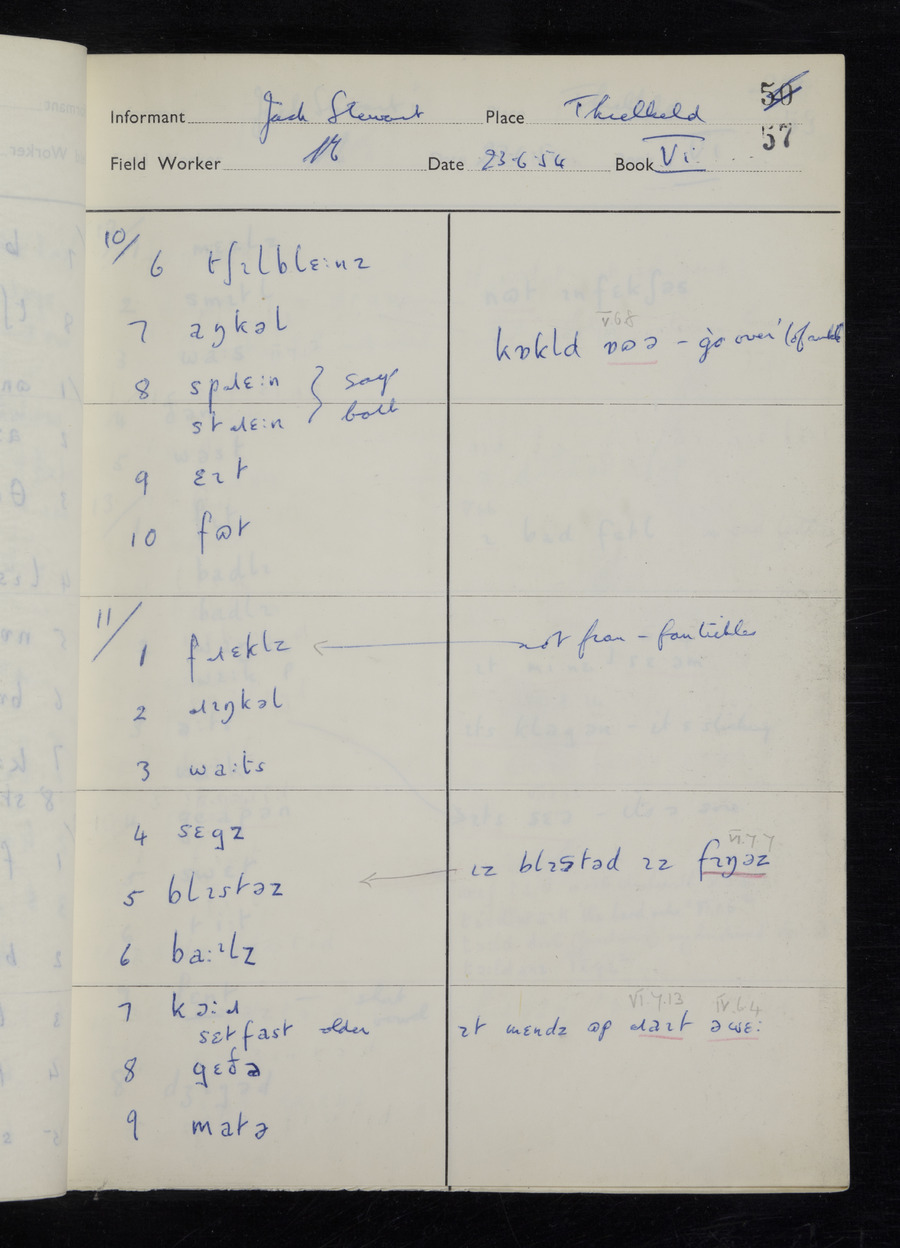 50
Informant Jack Stewart Place Threlkeld
57
Field Worker Date 23·6·54 Book VI
10/
6 tʃɪlblɛ:nz
7 aŋkəl
VI 6 8
kɒkld ɒʊə - go over
8 spɹɛ:n } say
stɹɛ:n } both
9 ɛɪt
10 fʊt
11/
1 fɹɛklz ← not fran - fantickles
2 ɹɪŋkəl
3 wa:ts
4 sɛgz
VI.7 7
5 blɪstəz ← ɪz blɪstəd ɪz fɪŋəz
6 ba:ɪlz
7 kɔ:ɹ
VI 7.13 IV.6.4
sɛtfast older ɪt mɛndz ʊp ɹaɪt əwɛ:
8 gɛðə
9 matə